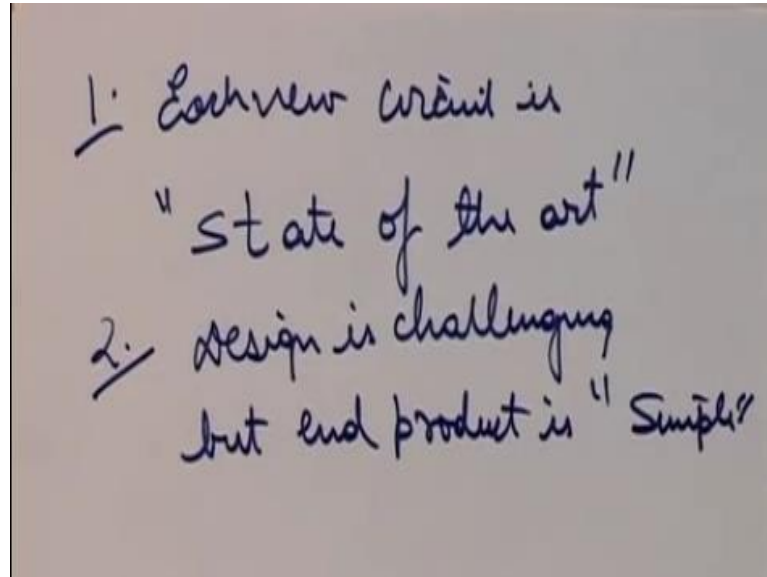 1. Each new circuit is
"State of the art"
2. Design is challenging
but end product is "Simple"